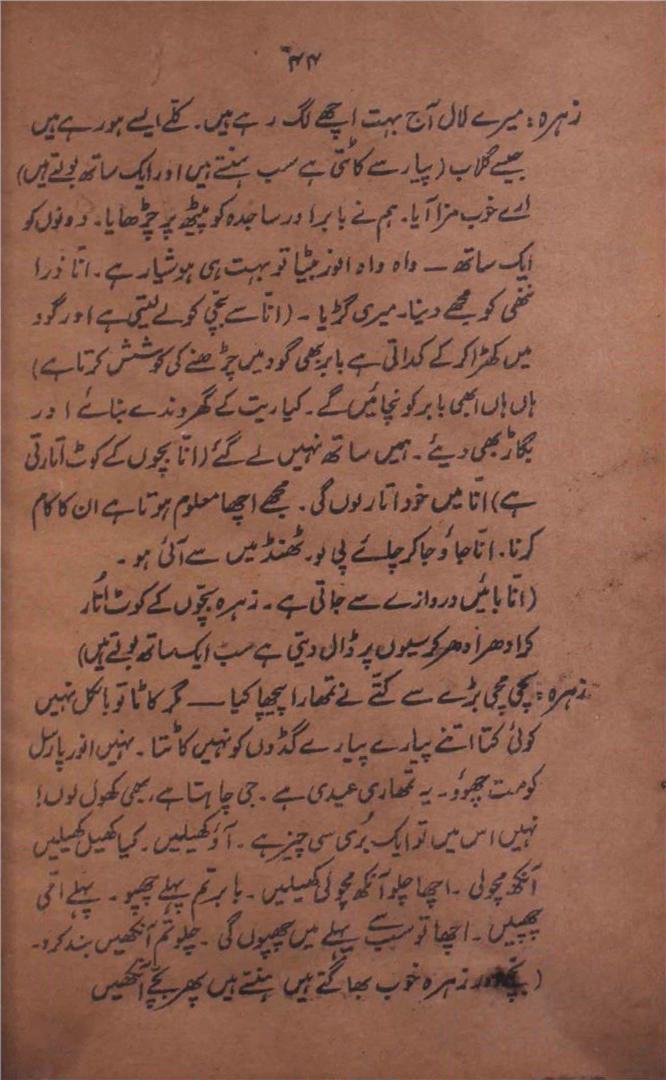 ۴۴
زہرہ: میرے لال آج بہت اچھے لگ رہے ہیں۔ کلّے ایسے ہو رہے ہیں
جیسے گلاب (پیار سے کاٹتی ہے سب ہنستے ہیں اور ایک ساتھ بولتے ہیں)
ارے خوب مزا آیا۔ ہم نے بابر اور ساجدہ کو پیٹھ پر چڑھایا۔ دونوں کو
ایک ساتھ — واہ واہ انور بیٹا تو بہت ہی ہوشیار ہے۔ انّا ذرا
ننھی کو مجھے دینا۔ میری گڑیا۔ (انّا سے بچّی کو لے لیتی ہے اور گود
میں کھڑا کر کے کداتی ہے بابر بھی گود میں چڑھنے کی کوشش کرتا ہے)
ہاں ہاں ابھی بابر کو نچائیں گے۔ کیا ریت کے گھروندے بنائے اور
بگاڑ بھی دیئے۔ ہمیں ساتھ نہیں لے گئے (انّا بچوں کے کوٹ اتارتی
ہے) انّا میں خود اتار لوں گی۔ مجھے اچھا معلوم ہوتا ہے ان کا کام
کرنا۔ انّا جاؤ جا کر چائے پی لو۔ ٹھنڈ میں سے آئی ہو۔
(انّا بائیں دروازے سے جاتی ہے۔ زہرہ بچّوں کے کوٹ اتُار
کر ادھر اُدھر کرسیوں پر ڈال دیتی ہے سب ایک ساتھ بولتے ہیں)
زہرہ: سچّی مچّی بڑے سے کتّے نے تمھارا پیچھا کیا — مگر کاٹا تو بالکل نہیں
کوئی کتا اتنے پیارے پیارے گڈوں کو نہیں کاٹتا۔ نہیں انور پارسل
کو مت چھوؤ۔ یہ تمھاری عیدی ہے۔ جی چاہتا ہے، بھی کھول لوں!
نہیں اس میں تو ایک بُری سی چیز ہے۔ آؤ کھیلیں۔ کیا کھیل کھیلیں
آنکھ مچولی۔ اچھا چلو آنکھ مچولی کھیلیں۔ بابر تم پہلے چھپو۔ پہلے امّی
چھپیں۔ اچھا تو سب سے پہلے میں چھپوں گی۔ چلو تم آنکھیں بند کرو۔
( زہرہ خوب بھاگتے ہیں ہنستے ہیں پھر بچّے آنکھیں